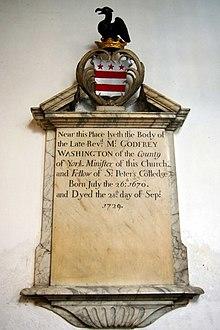 Near this Place lyeth the Body of
the Late Revd. Mr. GODFREY
WASHINGTON of the County
of York. Minister of this Church,
and Fellow of St. Peter's Colledge
Born July the 26th. 1670.
and Dyed the 28th. day of Sepr.
1729.